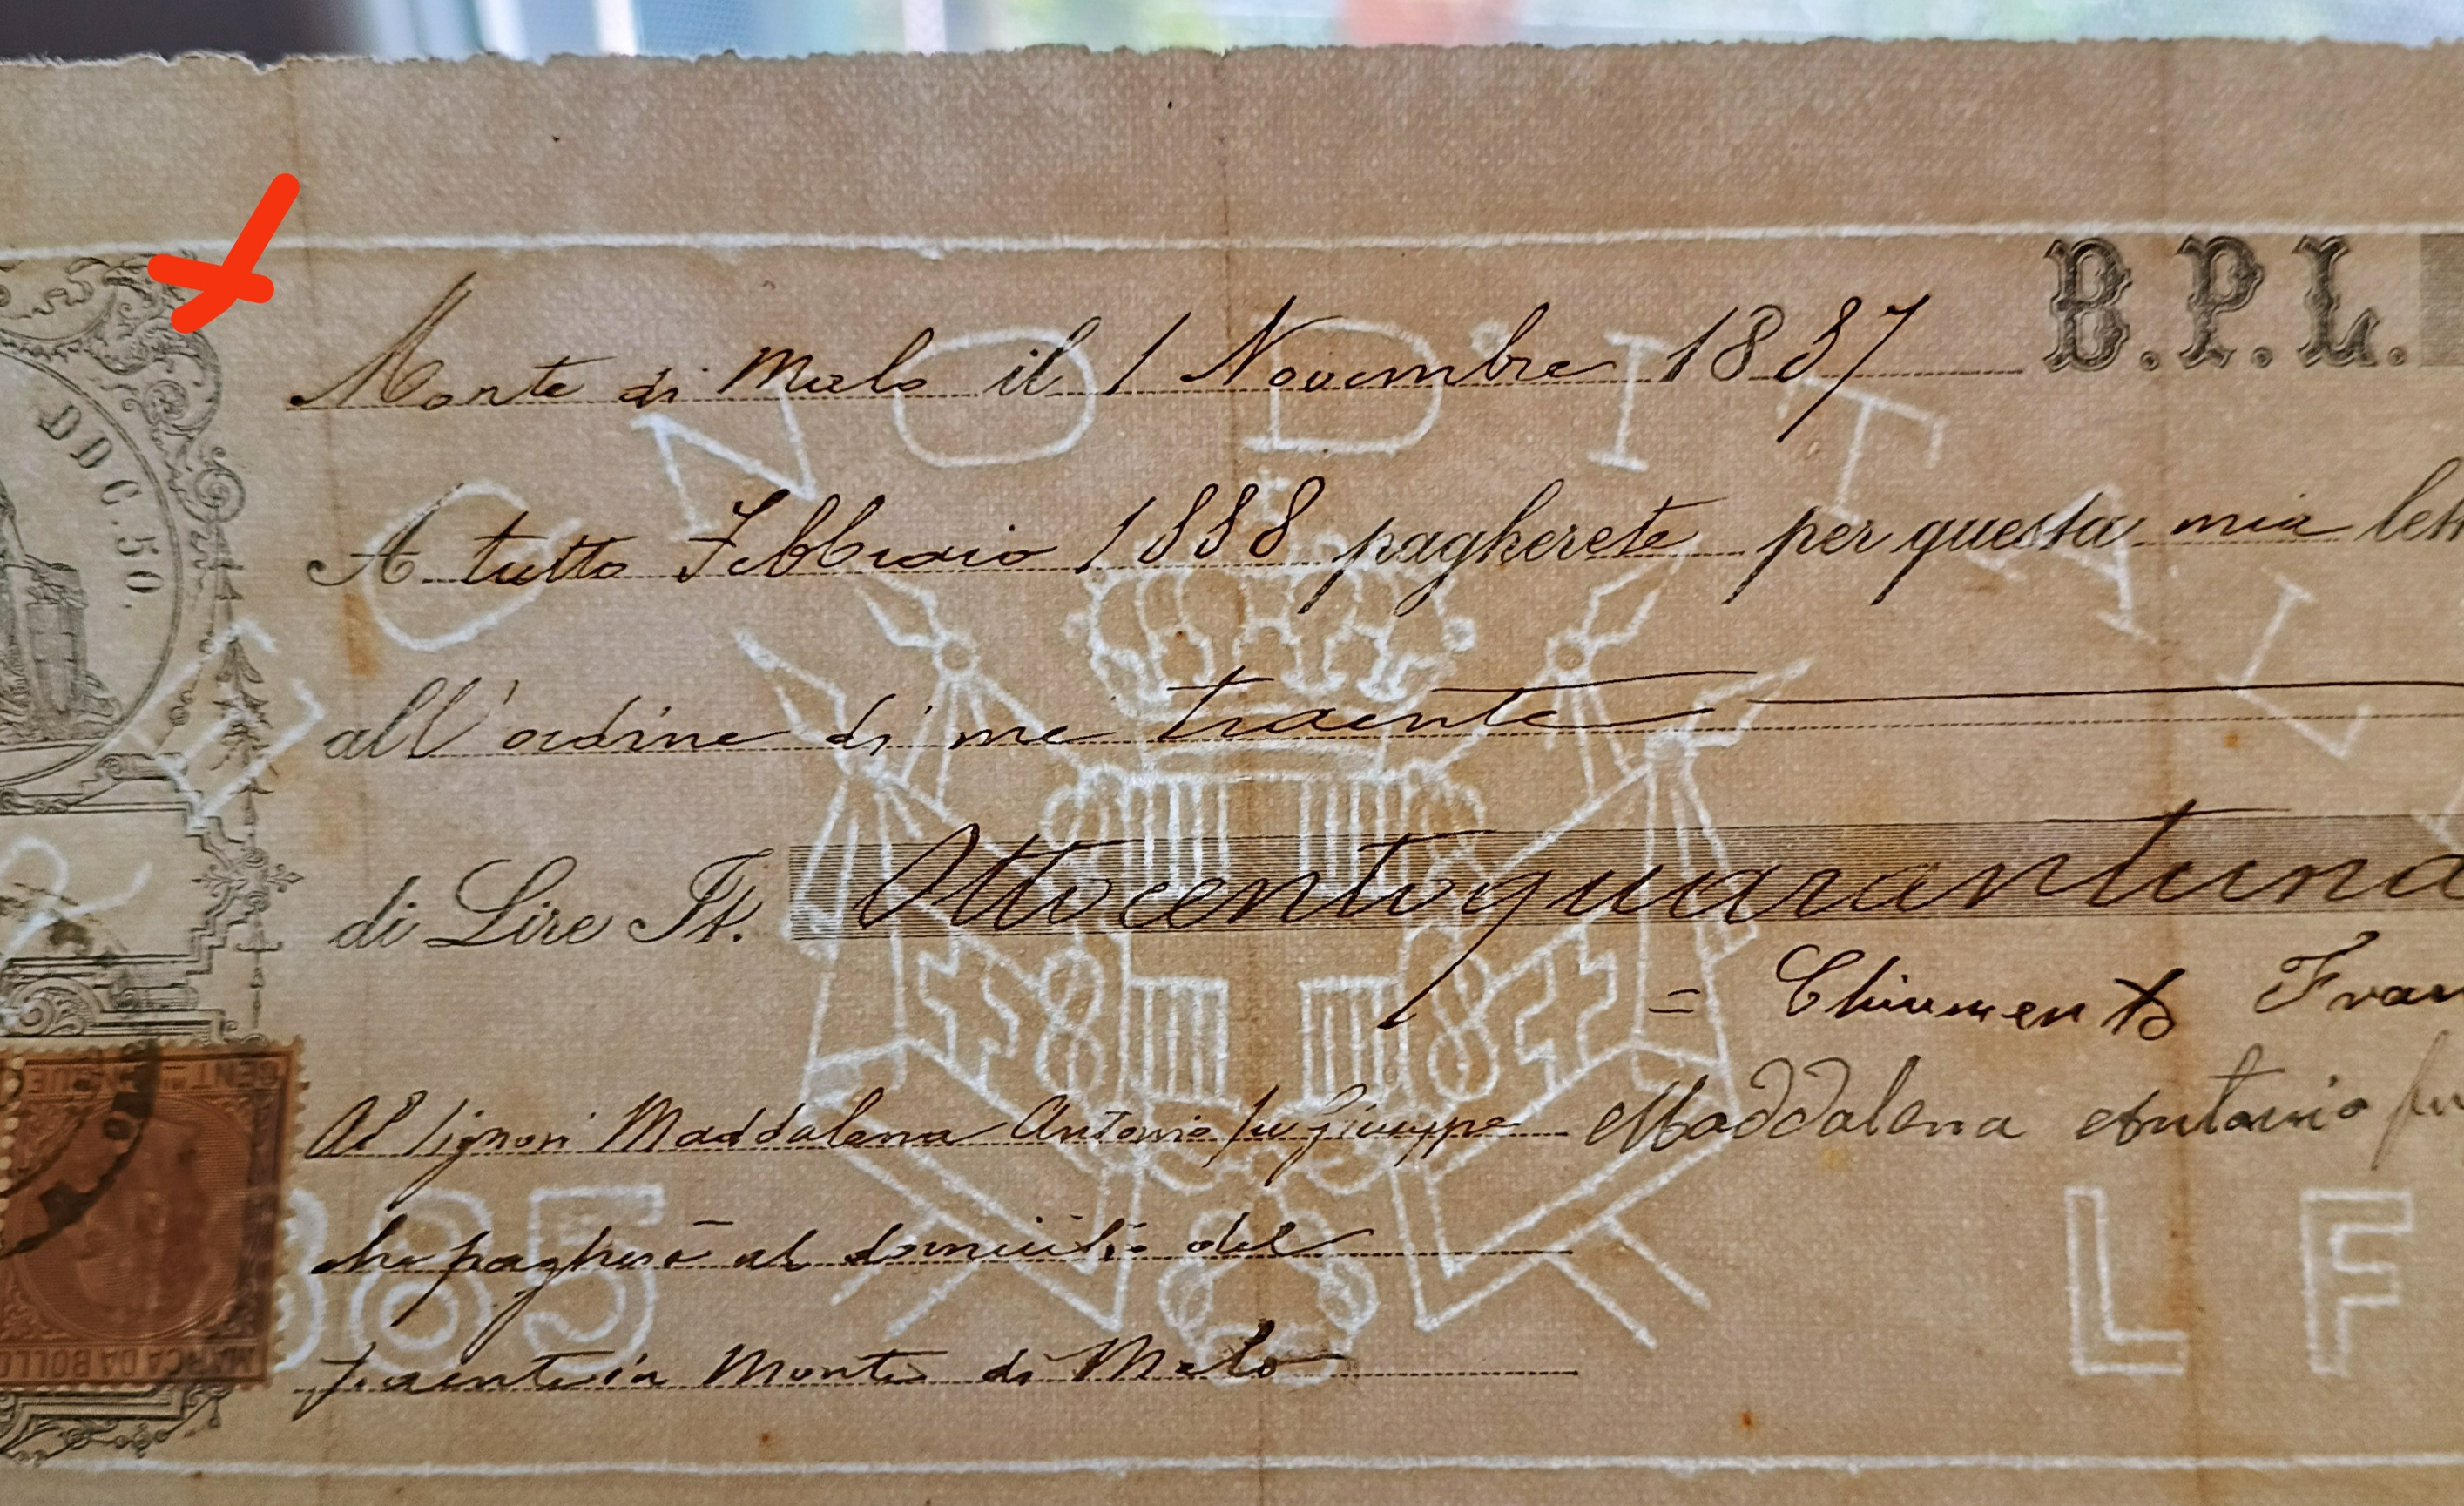 Monte di Malo il 1 Novembre 1887 B.P.L.
A tutto Febbraio 1888 pagherete per questa mia lett
all'ordine di me traente
di Lire It. Ottocentoquarantuna
= Chiumenti Fran
Al Signori Maddalena Antonio fu Giuseppe Maddalena Antonio fu
che pagherà al domicilio del
traente in Monte di Malo
DDC.50.
CENT
MARCA DA BOLLO
REGNO D'ITALIA
885
LF